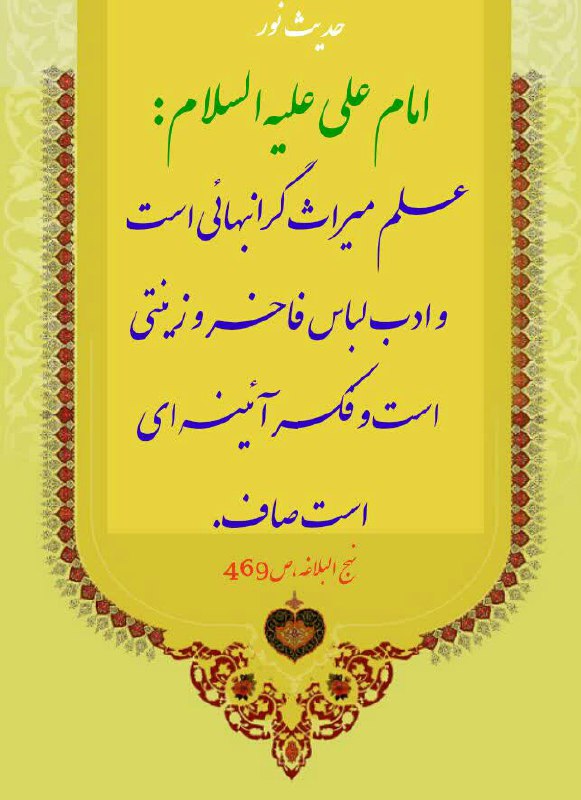 حدیث نور
امام علی علیه السلام :
علم میراث گرانبهائی است
و ادب لباس فاخر و زینتی
است و فکر آئینه ای
است صاف.
نهج البلاغه، ص469